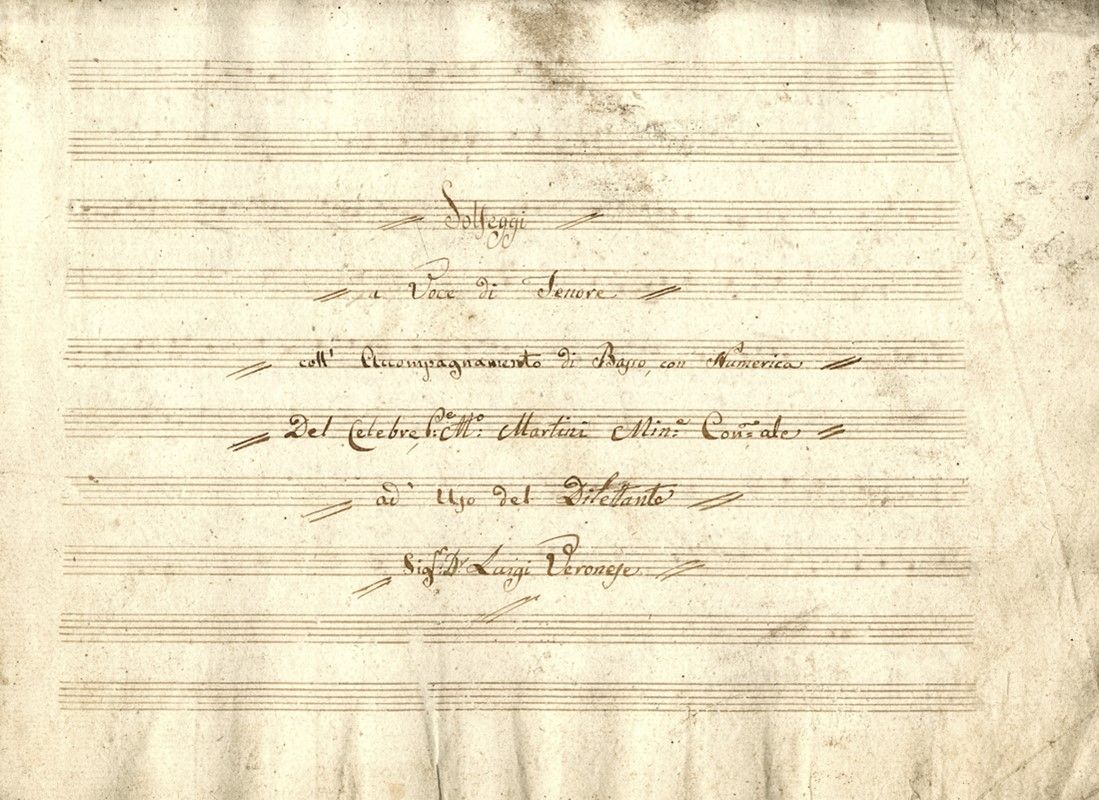 Solfeggi
a Voce di Tenore
coll' Accompagnamento di Basso, con Numerica
Del Celebre P:e M:o Martini Min:e Con:ale
ad' Uso del Dilettante
Sig:r D:r Luigi Veronese